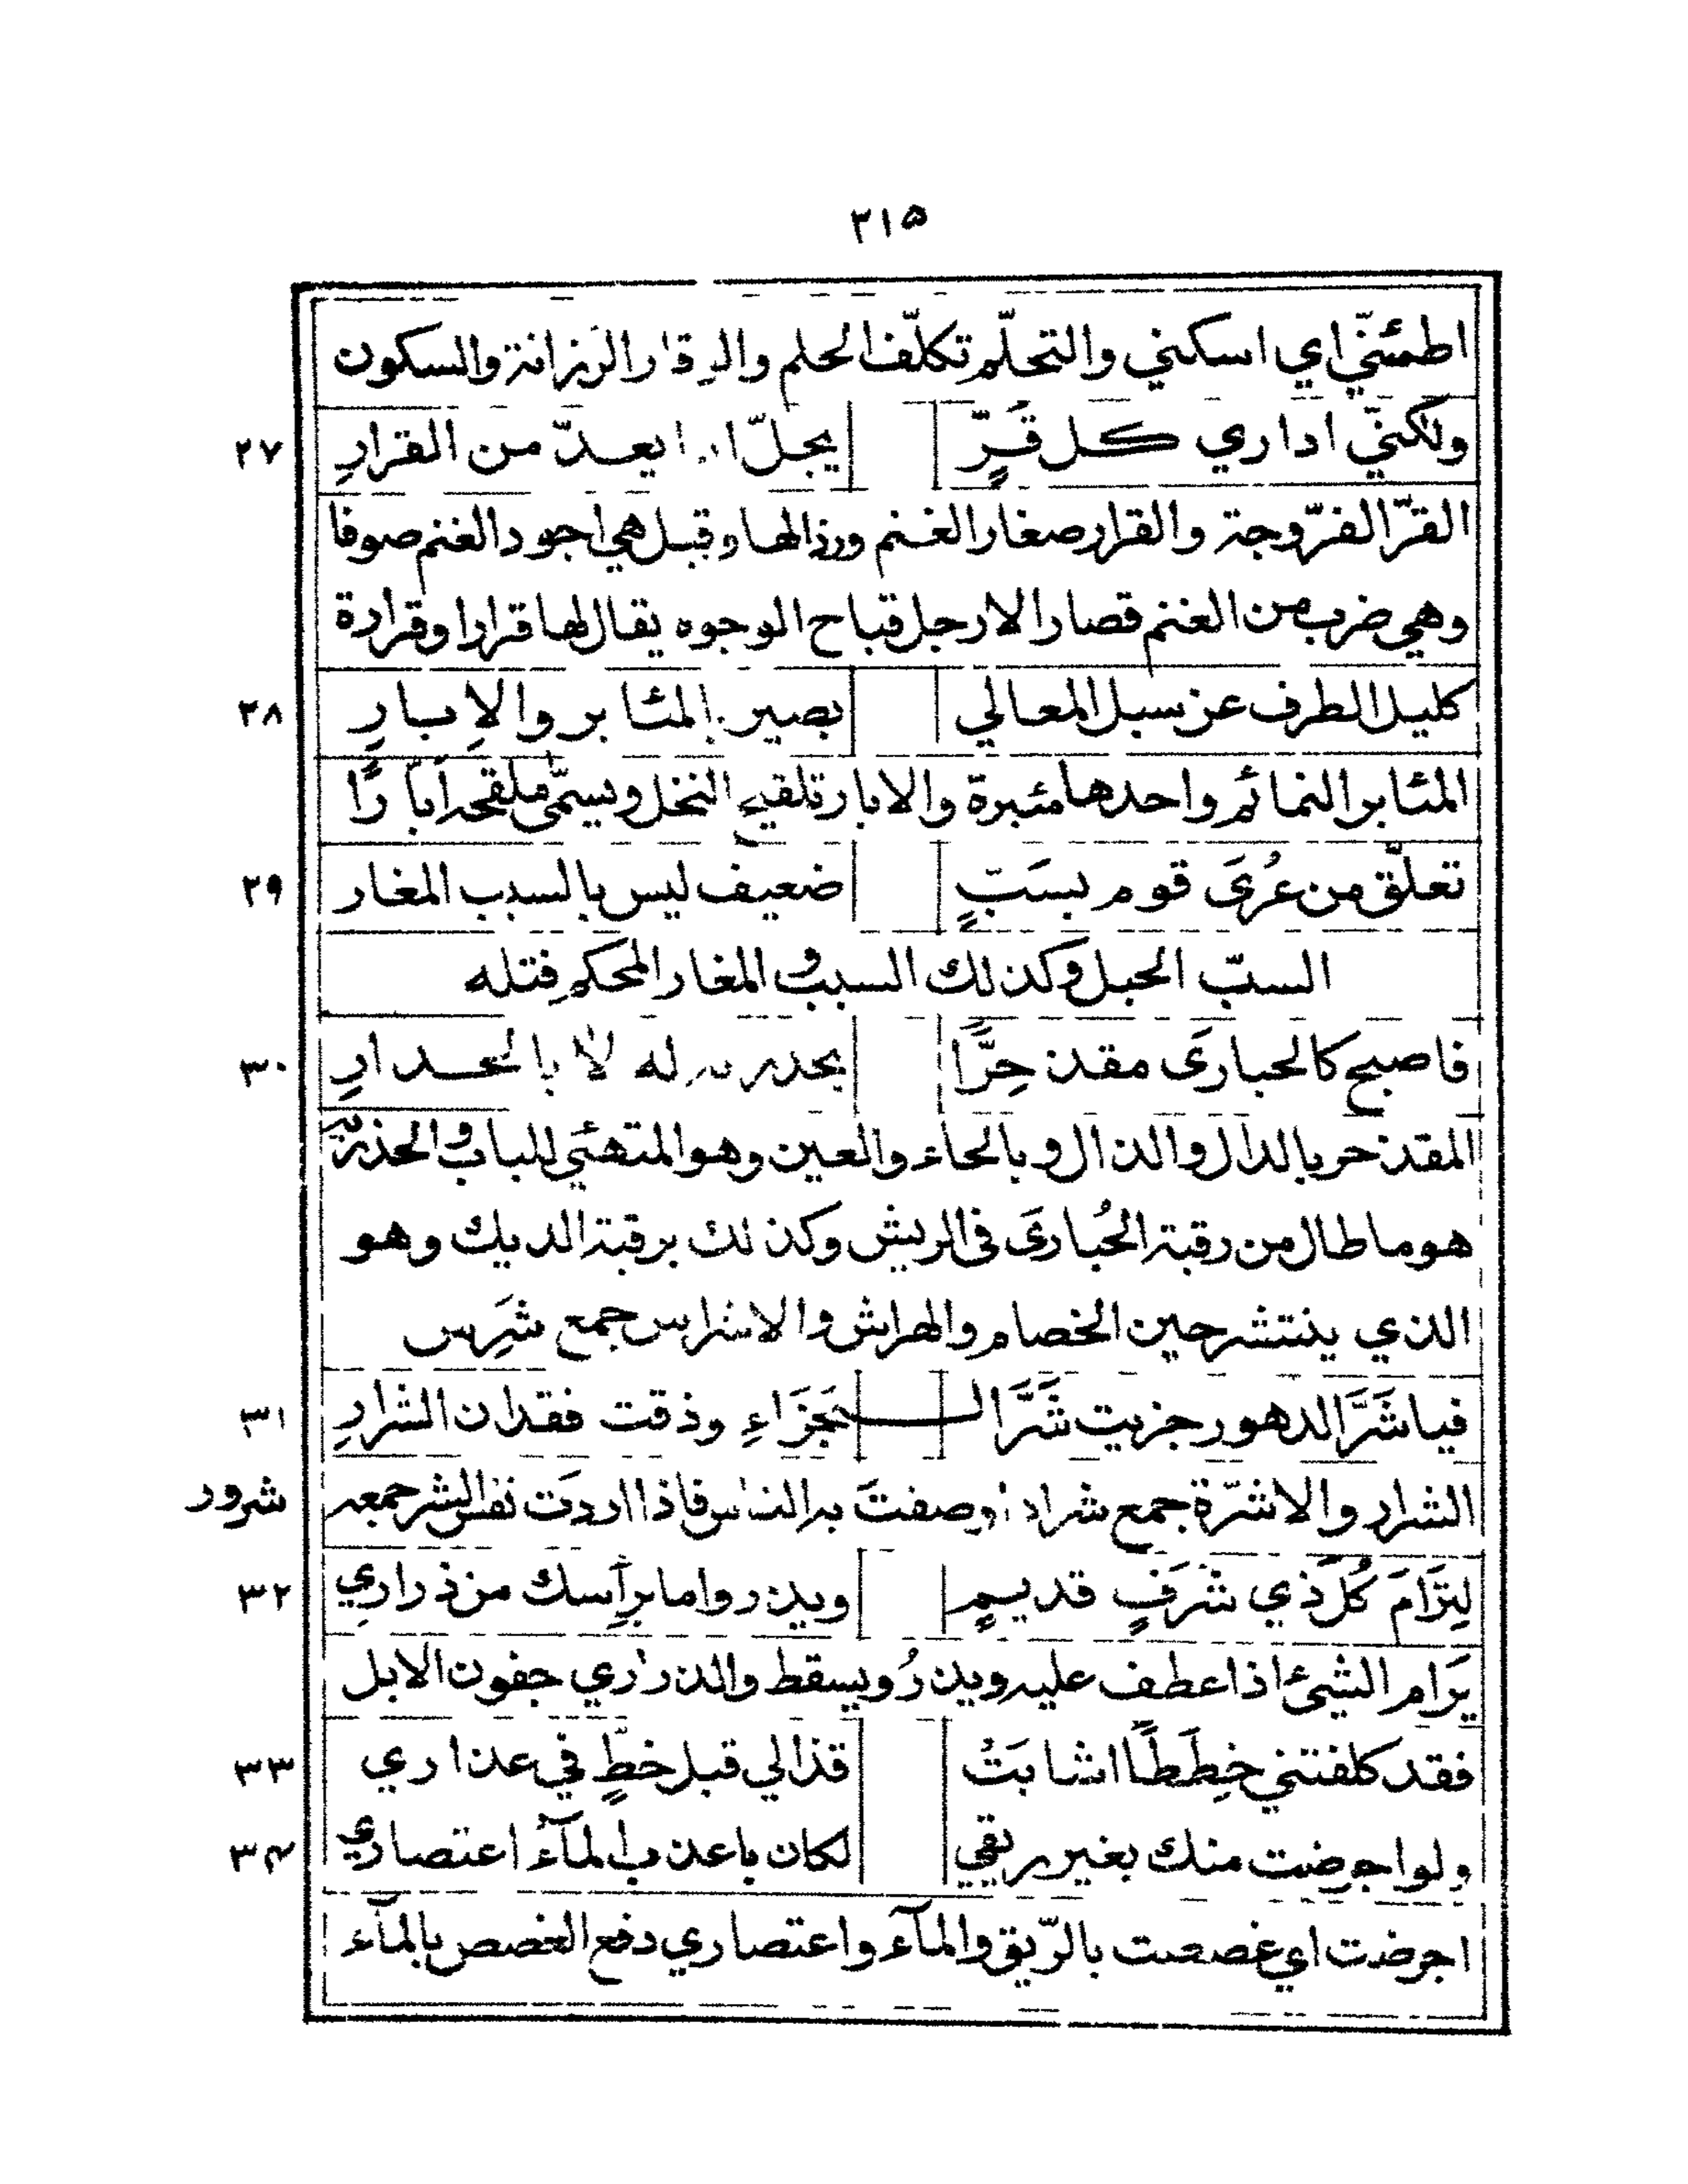 ٣١٥
اطمئنّي اي اسكني والتحلّم تكلّف الحلم والوقار الرزانة والسكون
ولكنّي اداري كل قَرٍّ يجلّ يعدّ من القرارِ ٢٧
القرّ الفرّوجة والقرار صغار الغنم ورذالها وقيل هي اجود الغنم صوفا
وهي ضرب من الغنم قصار الارجل قباح الوجوه يقال لها قرارا وقرارة
كليل الطرف عن سبل المعالي بصير بالمثابر والاِبارِ ٢٨
المثابر النمائم واحدها مئبرة والابار تلقيح النخل ويسمّى ملقحه اَبّارًا
تعلّق من عُرىَ قوم بسَبّ ضعيف ليس بالسبب المغار ٢٩
السبّ الحبل وكذلك السبب والمغار المحكم فتله
فاصبح كالحبارىَ مقذحِرًّا له لا بالحدارِ ٣٠
المقذحر بالدال والذال وبالحاء والعين وهو المتهئي للباب والحذرية
هو ما طال من رقبة الحُبارىَ في الريش وكذلك برقبة الديك وهو
الذي ينتشر حين الخصام والهراش والاشراس جمع شَرِس
فيا شَرَّ الدهور جزيت شَرَّ الـــجَزَاءِ وذقت فقدان الشرارِ ٣١
الشرار والاشرّة جمع شرا وصفتَ به الناس فاذا اردت نفس الشر جمعه شرور
لِتَرْاَمَ كُلَّ ذي شَرَفٍ قديمٍ ويذروا ما برأسك من ذراريِ ٣٢
يَرَام الشئ اذا عطف عليه ويذرُ ويسقط والذراري جفون الابل
فقد كلفتني خِطَطًا اشابَتْ قذالي قبل خطٍّ في عذاري ٣٣
ولو اجرضت منك بغير ريقي لكان باعذب المآءِ اعتصاري ٣٤
اجرضت اي غصصت بالرّيق والمآء واعتصاري دفع الغصص بالمآء